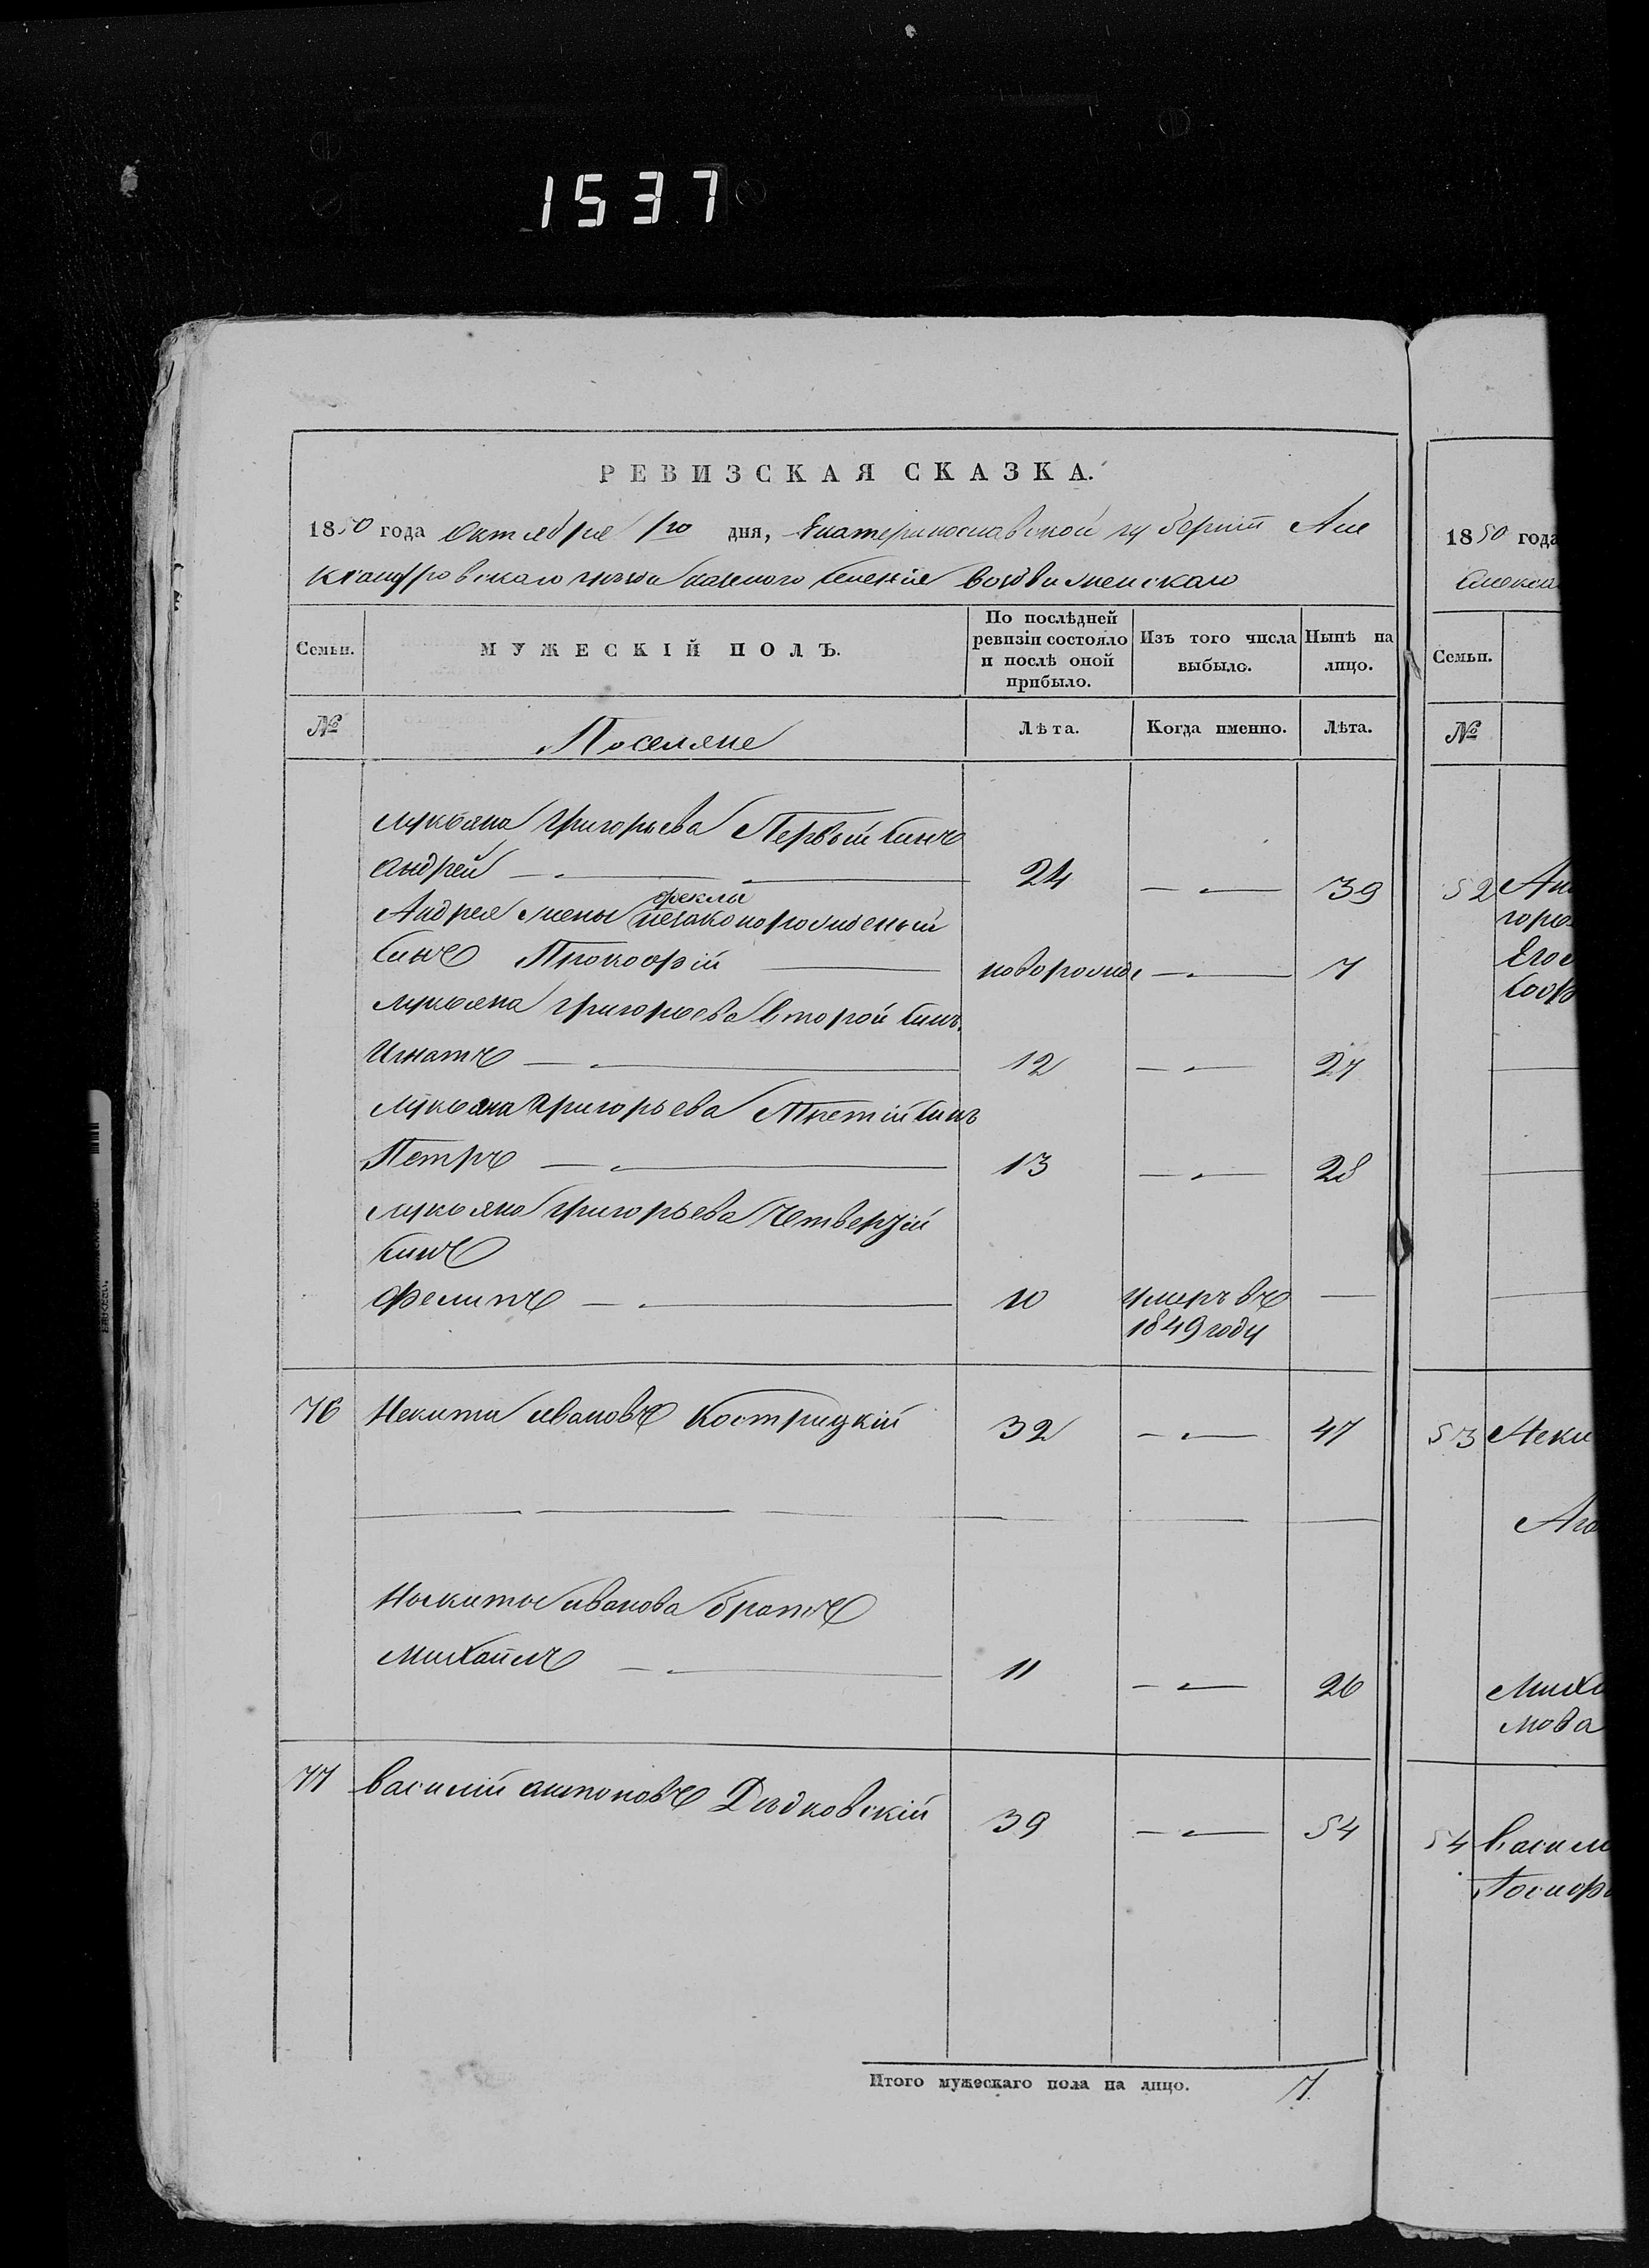 1537
РЕВИЗСКАЯ СКАЗКА.
1850 года Октября 1го дня, Екатеринославской губернiи Але
ксандровского уѣзда казеного селенiя воздвиженскаго
Семьи.
МУЖЕСКІЙ ПОЛЪ.
По послѣдней ревизіи состояло и послѣ оной прибыло.
Изъ того числа выбыло.
Нынѣ на лицо.
№
Поселяне
Лѣта.
Когда именно.
Лѣта.
Лукьяна Григорьева Первый синъ
Андрей — 24 — 39
фекли
Андрея жены незаконорожденый
синъ Прокофій — новорожде — 7
Лукьяна Григорьева второй синъ
Игнатъ — 12 — 27
Лукьяна Григорьева Третій синъ
Петръ — 13 — 28
Лукьяна Григорьева Четвертій
синъ
Фелипъ — 10 умеръ въ —
1849 году
76 Некита ивановъ Кострицкій 32 — 47
Никиты иванова братъ
Михаилъ — 11 — 26
77 василій антоновъ Дядковскій 39 — 54
Итого мужескаго пола на лицо. 7.
1850 года
Семьи.
№
52
Его
53 Неки
Миха
мова
54 васил